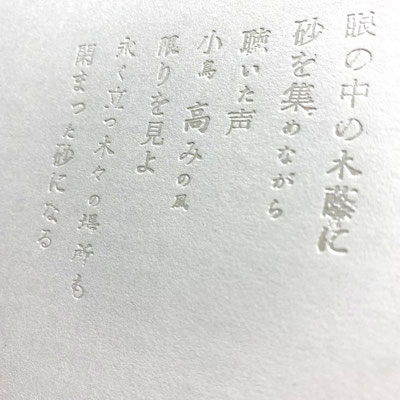 眼の中の木蔭に
砂を集めながら
聴いた声
小鳥 高みの風
限りを見よ
永く立つ木々の場所も
閑まつた砂になる